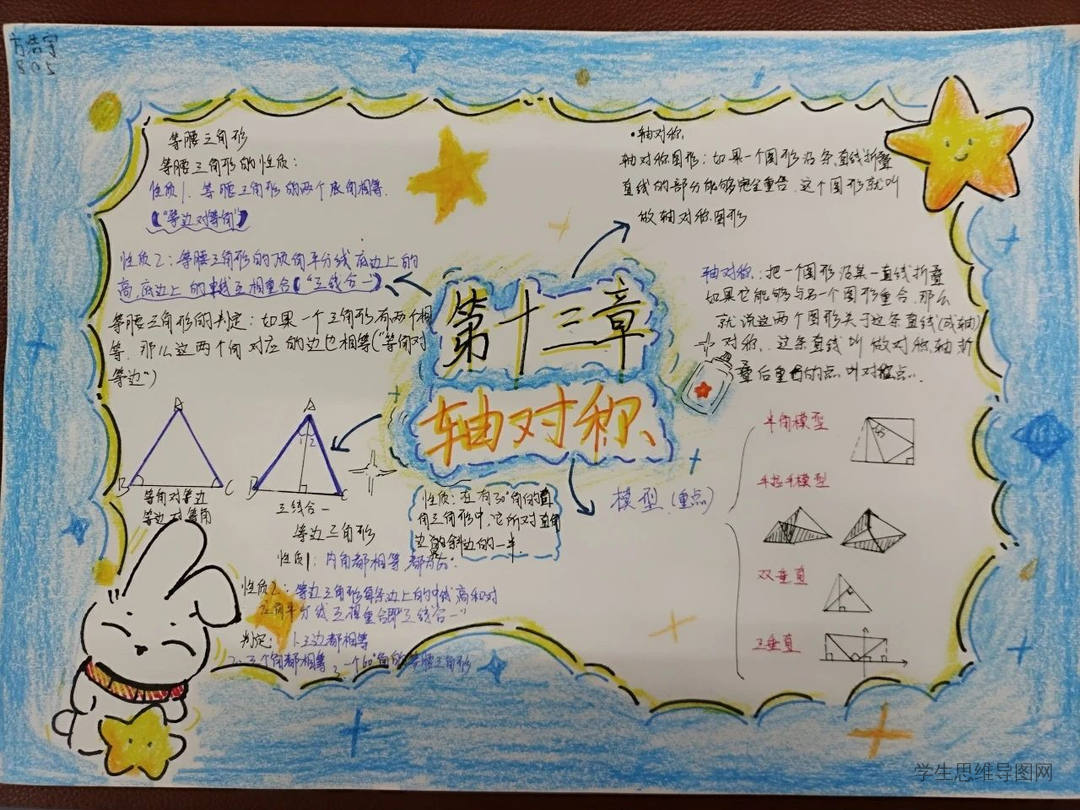 方浩宇
802
等腰三角形
等腰三角形的性质:
性质1、等腰三角形的两个底角相等.
(“等边对等角”)
性质2:等腰三角形的顶角平分线底边上的
高,底边上的中线互相重合(“三线合一”)
等腰三角形的判定:如果一个三角形有两个相
等,那么这两个角对应的边也相等(“等角对
等边”)
A
B
C
等角对等边
等边对等角
A
1 2
B
C
三线合一
等边三角形
性质1:内角都相等 都为60°.
性质2:等边三角形每条边上的中线高和对
应角平分线互相重合即“三线合一”
判定: 1.三边都相等
2.三个角都相等 3.一个60°角的等腰三角形
第十三章
轴对称
性质:在有30°角的直
角三角形中,它所对直角
边的斜边的一半.
·轴对称.
轴对称图形:如果一个图形沿条直线折叠
直线的部分能够完全重合.这个图形就叫
做轴对称图形
轴对称:把一个图形沿某一直线折叠
如果它能够与另一个图形重合.那么
就说这两个图形关于这条直线(成轴)
对称.这条直线叫做对称轴折
叠后重合的点叫对称点.
模型.(重点)
半角模型
45
手拉手模型
双垂直
三垂直
学生思维导图网